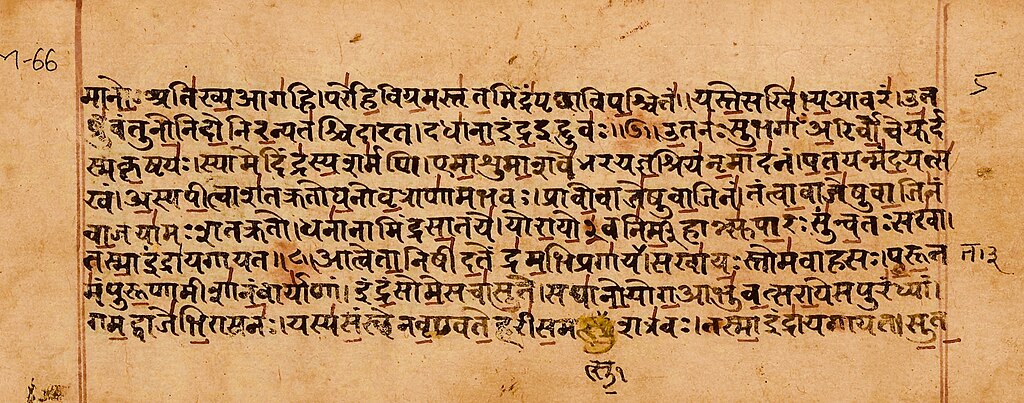 M-66
5
मानो॒अतिख्यआगहि।परेहिविग्रमस्तृतमिंद्रंपृछाविपश्चितं।।यस्तेसखिभ्यआवरं।उत
ब्रुवंतुनोनिदोनिरन्यतश्चिदारत।दधानाइंद्रइद्दुवः।।७।।उतनःसुभगाँअरिर्वोचेयुर्द
स्मकृष्टयः।स्यामेदिंद्रस्यशर्मणि।एमाशुमाशवेभरयज्ञश्रियंनृमादनं।पतयन्मंदयत्स
खं।अस्यपीत्वाशतक्रतोघनोवृत्राणामभवः।प्रावोवाजेषुवाजिनं।तंत्वावाजेषुवाजिनं
वाजयामःशतक्रतो।धनानामिंद्रसातये।योरायो३वनिर्महान्त्सुपारःसुन्वतःसखा।
तस्माइंद्रायगायत।।८।।आत्वेतानिषीदतेंद्रमभिप्रगायत।सखायःस्तोमवाहसः।पुरूत
मंपुरूणामीशानंवार्याणां।इंद्रंसोमेसचासुते।सघानोयोगआभुवत्सरायेसपुरंध्यां।
गमद्वाजेभिरासनः।यस्यसंस्थेनवृण्वतेहरीसमत्सुशत्रवः।तस्माइंद्रायगायत।सुत
त्सु१